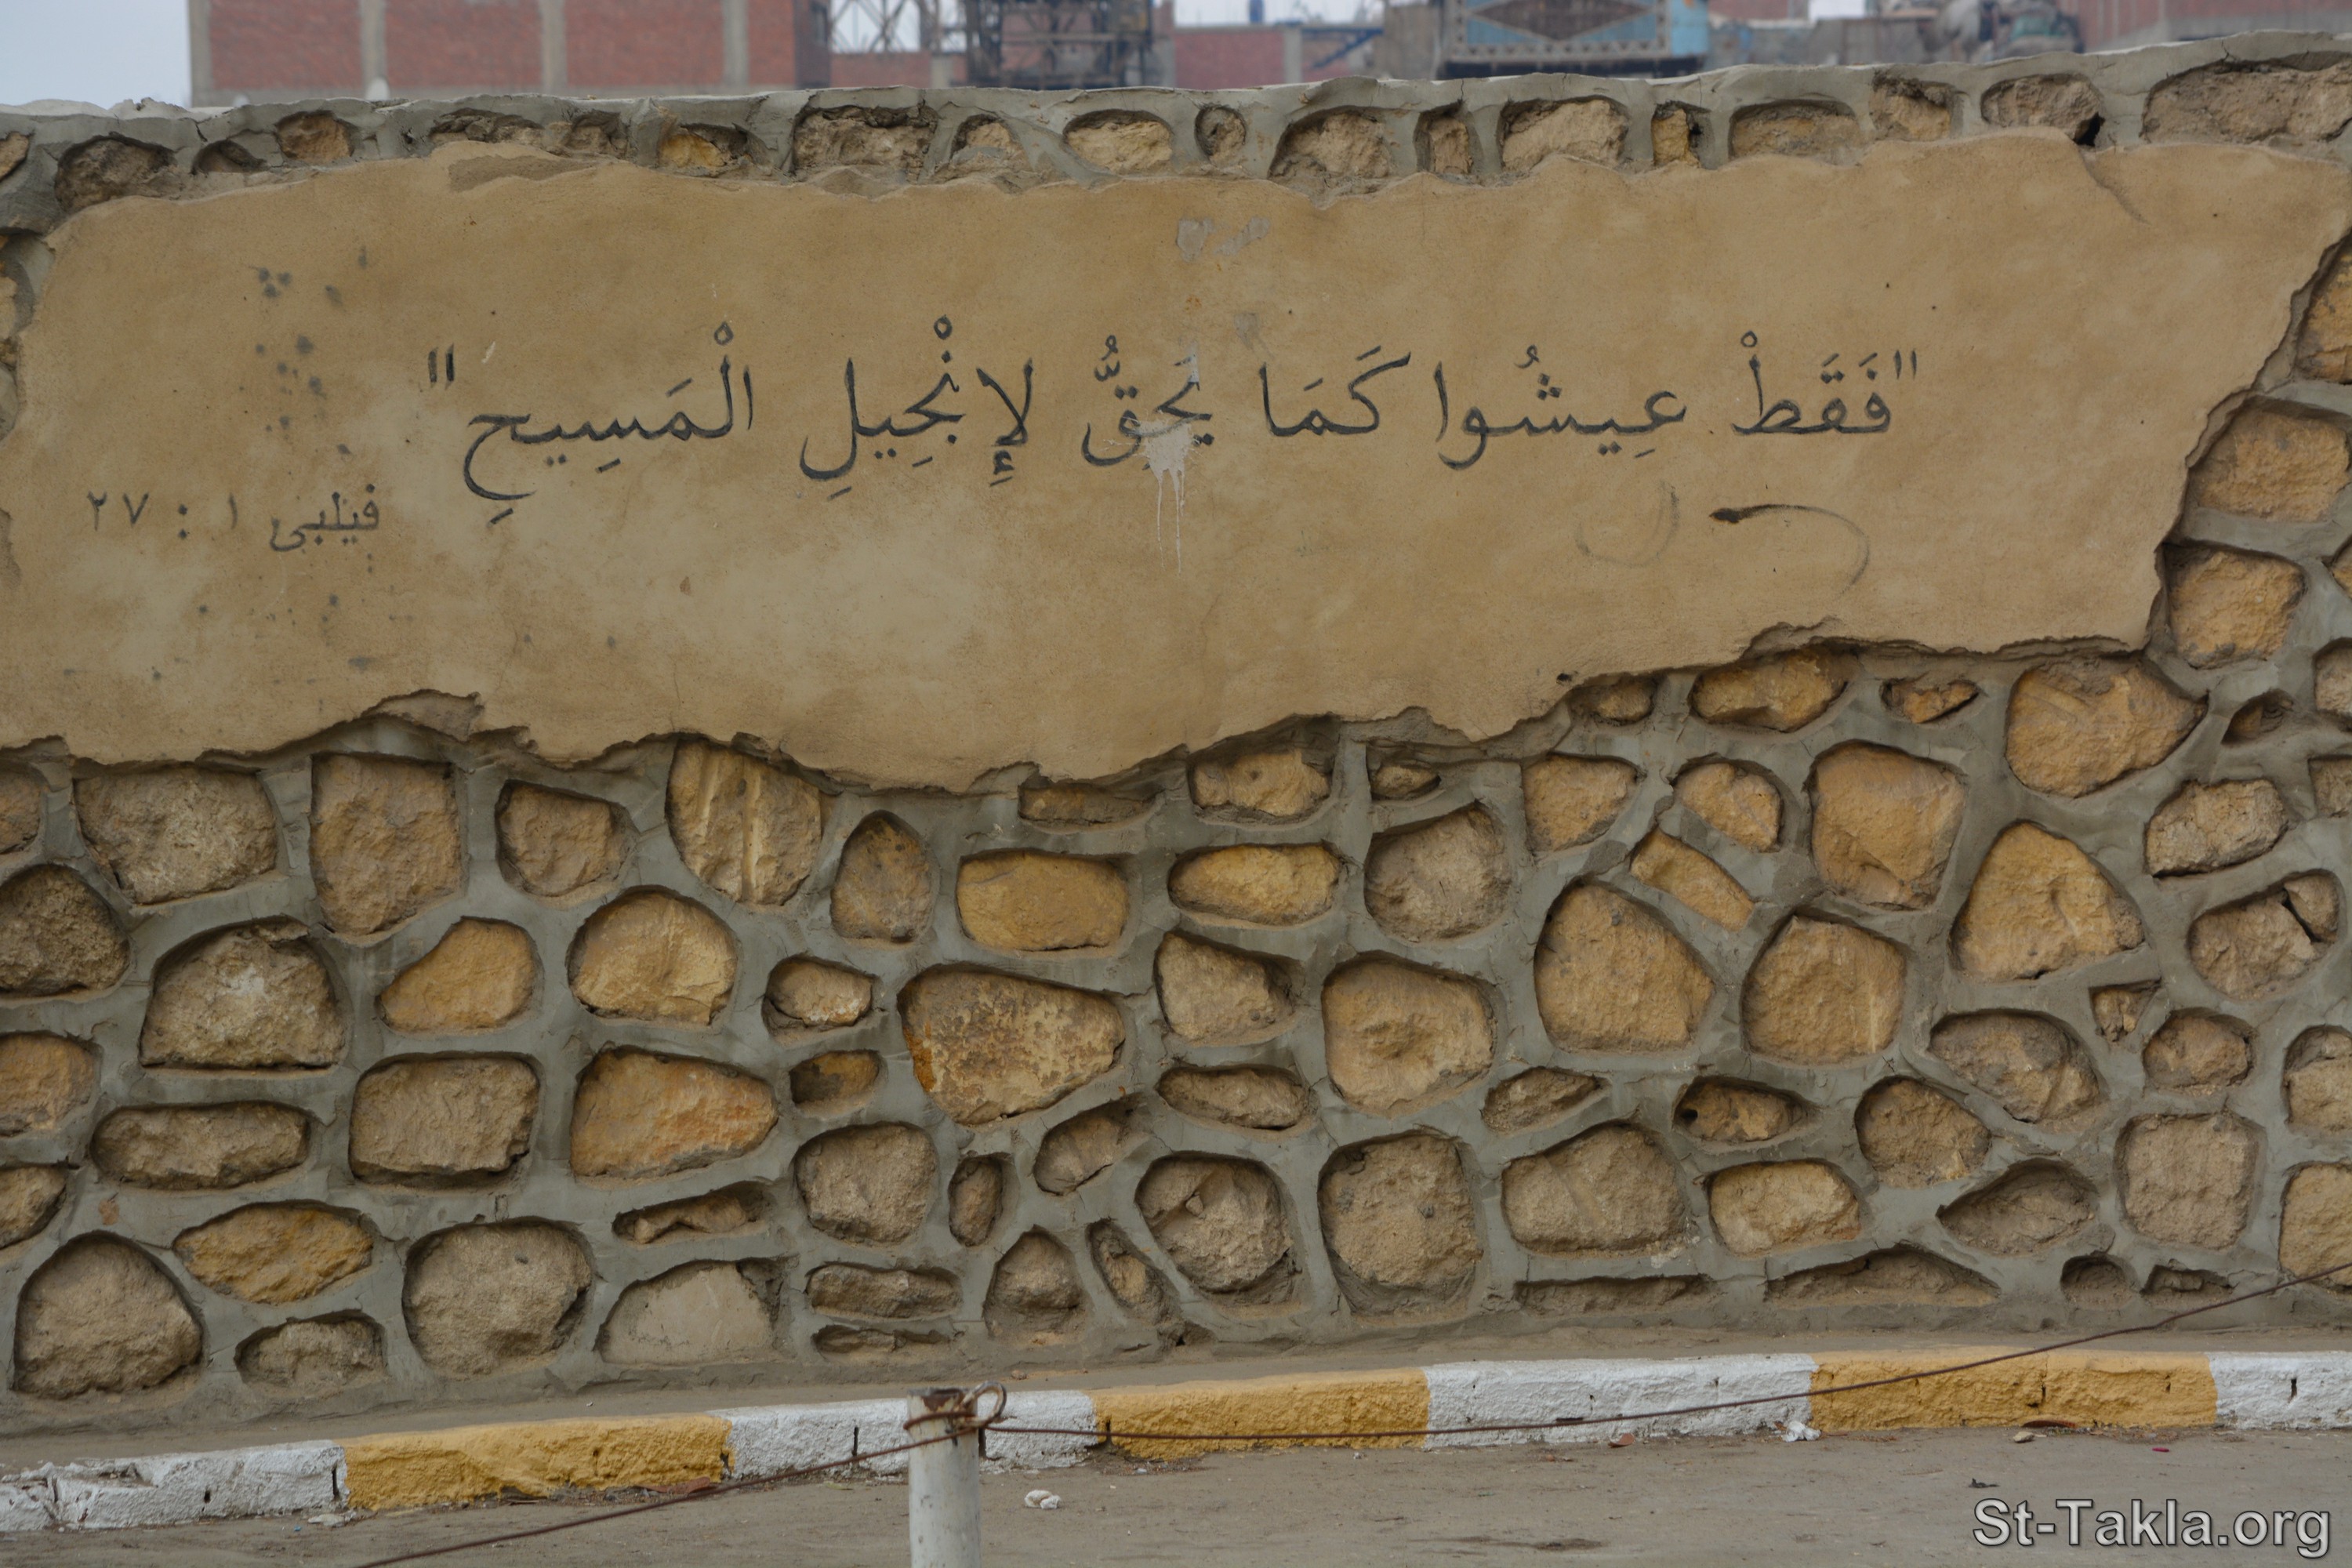 "فَقَطْ عِيشُوا كَمَا يَحِقُّ لإِنْجِيلِ الْمَسِيحِ"
فيلبى ١ : ٢٧
St-Takla.org